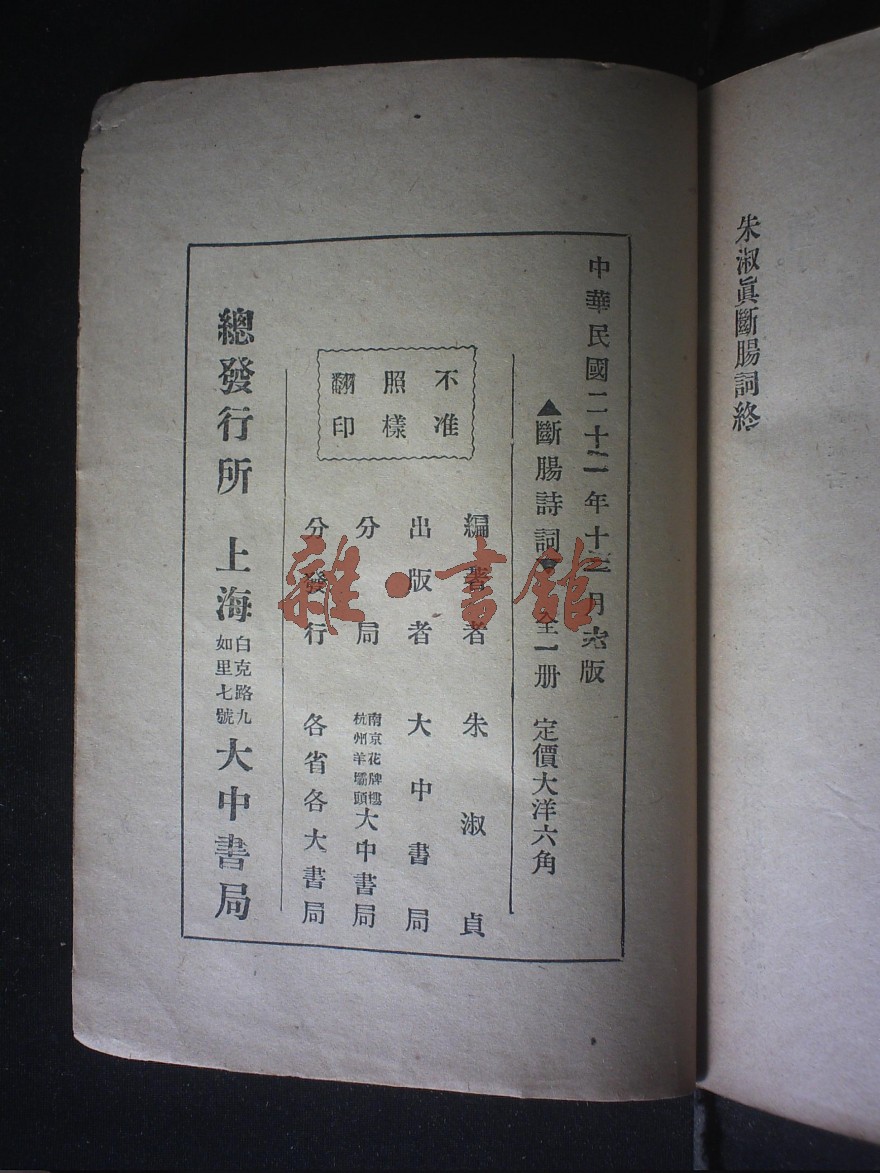 朱淑眞斷腸詞終
中華民國二十二年十二月六版
▲斷腸詩詞▼全一册 定價大洋六角
不准
照樣
翻印
編著者 朱淑貞
出版者 大中書局
分局 南京花牌樓 杭州羊壩頭 大中書局
分發行 各省各大書局
總發行所 上海 白克路九如里七號 大中書局
雜·書館